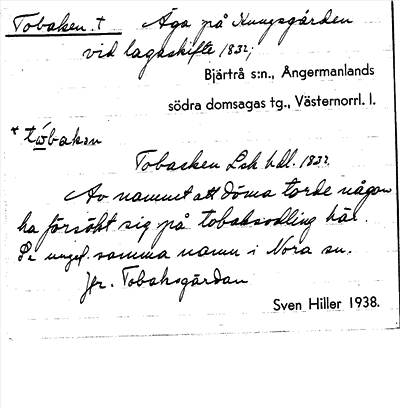 Tobaken. † Äga på Kungsgården
vid lagaskifte 1832;
Bjärtrå s:n., Ångermanlands
södra domsagas tg., Västernorrl. l.
* tωbakən
Tobacken Lsk hdl. 1832.
Av namnet att döma torde någon
ha försökt sig på tobaksodling här.
Se ungef. samma namn i Nora sn.
Jfr. Tobaksgårdan
Sven Hiller 1938.